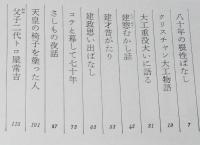 八十年の根性ばなし 7
クリスチャン大工物語 19
大工重役大いに語る 31
建窓むかし話 43
建才昔がたり 53
建政思い出ばなし 63
コテと暮して七十年 75
さしもの夜話 87
天皇の椅子を塗った人 101
父子二代トロ屋常吉 115